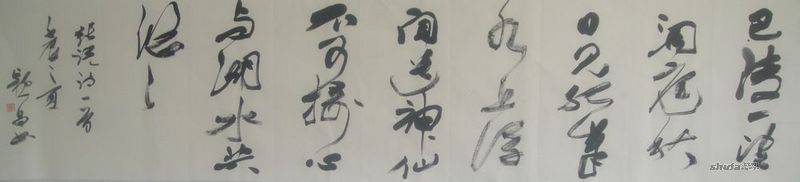 巴陵一望
洞庭秋
日见孤峯
水上浮
闻道神仙
不可接心
与湖水共
悠々
张说诗一首